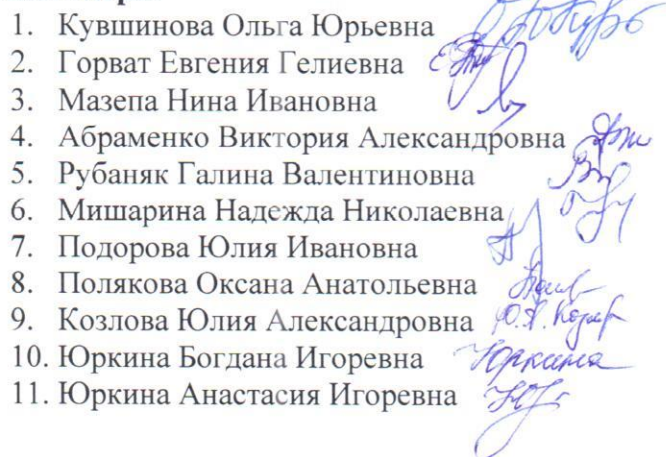 1. Кувшинова Ольга Юрьевна
2. Горват Евгения Гелиевна
3. Мазепа Нина Ивановна
4. Абраменко Виктория Александровна
5. Рубаняк Галина Валентиновна
6. Мишарина Надежда Николаевна
7. Подорова Юлия Ивановна
8. Полякова Оксана Анатольевна
9. Козлова Юлия Александровна
10. Юркина Богдана Игоревна Юркина
11. Юркина Анастасия Игоревна